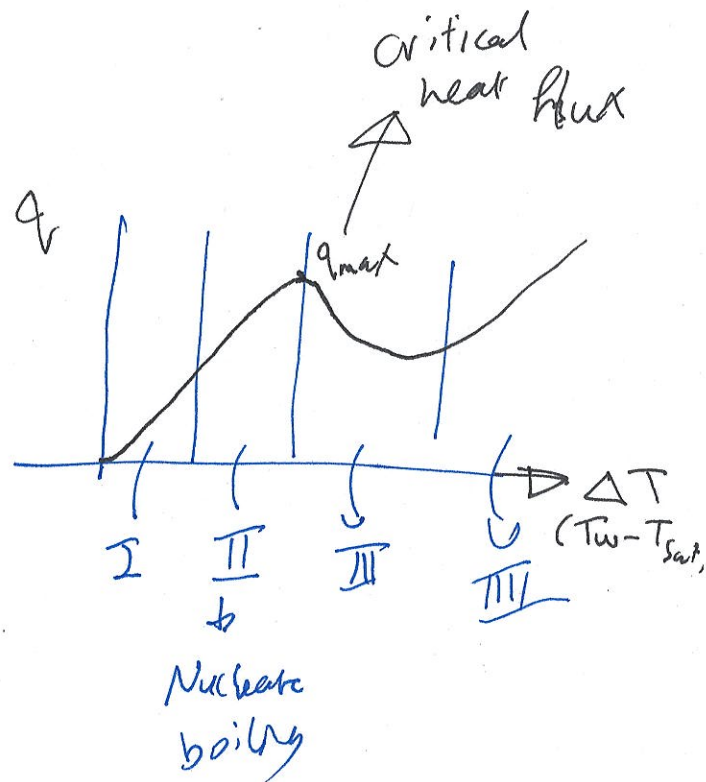 critical
heat flux
q
qmax
ΔT
(Tw-Tsat,
I
II
III
IIII
Nucleate
boiling